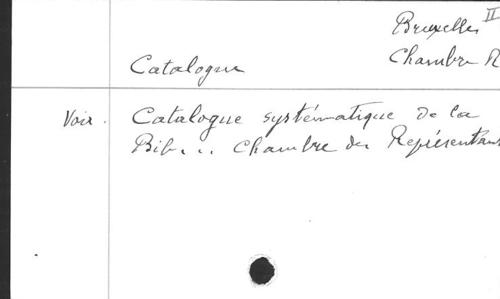 Bruxelles II
Catalogue Chambre R
Voir. Catalogue systématique de la
Bib... Chambre des Représentans